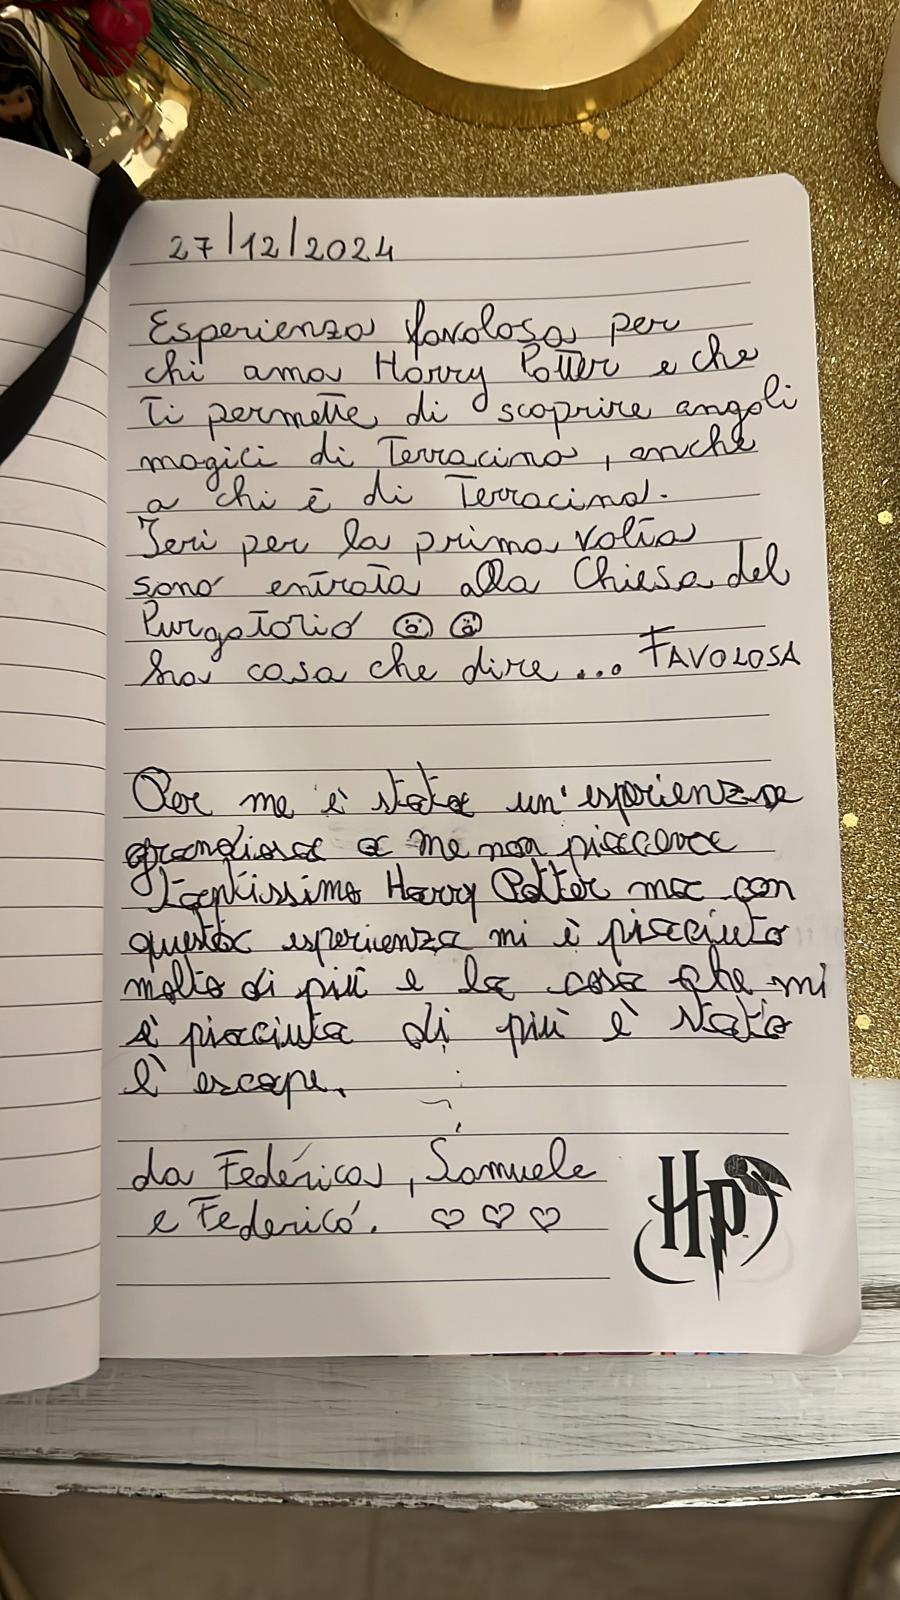 27/12/2024
Esperienza favolosa per
chi ama Harry Potter e che
ti permette di scoprire angoli
magici di Terracina, anche
a chi è di Terracina.
Ieri per la prima volta
sono entrata alla Chiesa del
Purgatorio 😮 😮
ha cosa che dire... FAVOLOSA
Per me è stata un'esperienza
grandiosa a me non piaceva
tantissimo Harry Potter ma con
questa esperienza mi è piaciuto
molto di più e la cosa che mi
è piaciuta di più è stato
l'escape.
da Federica, Samuele
e Federico. ♡ ♡ ♡
HP